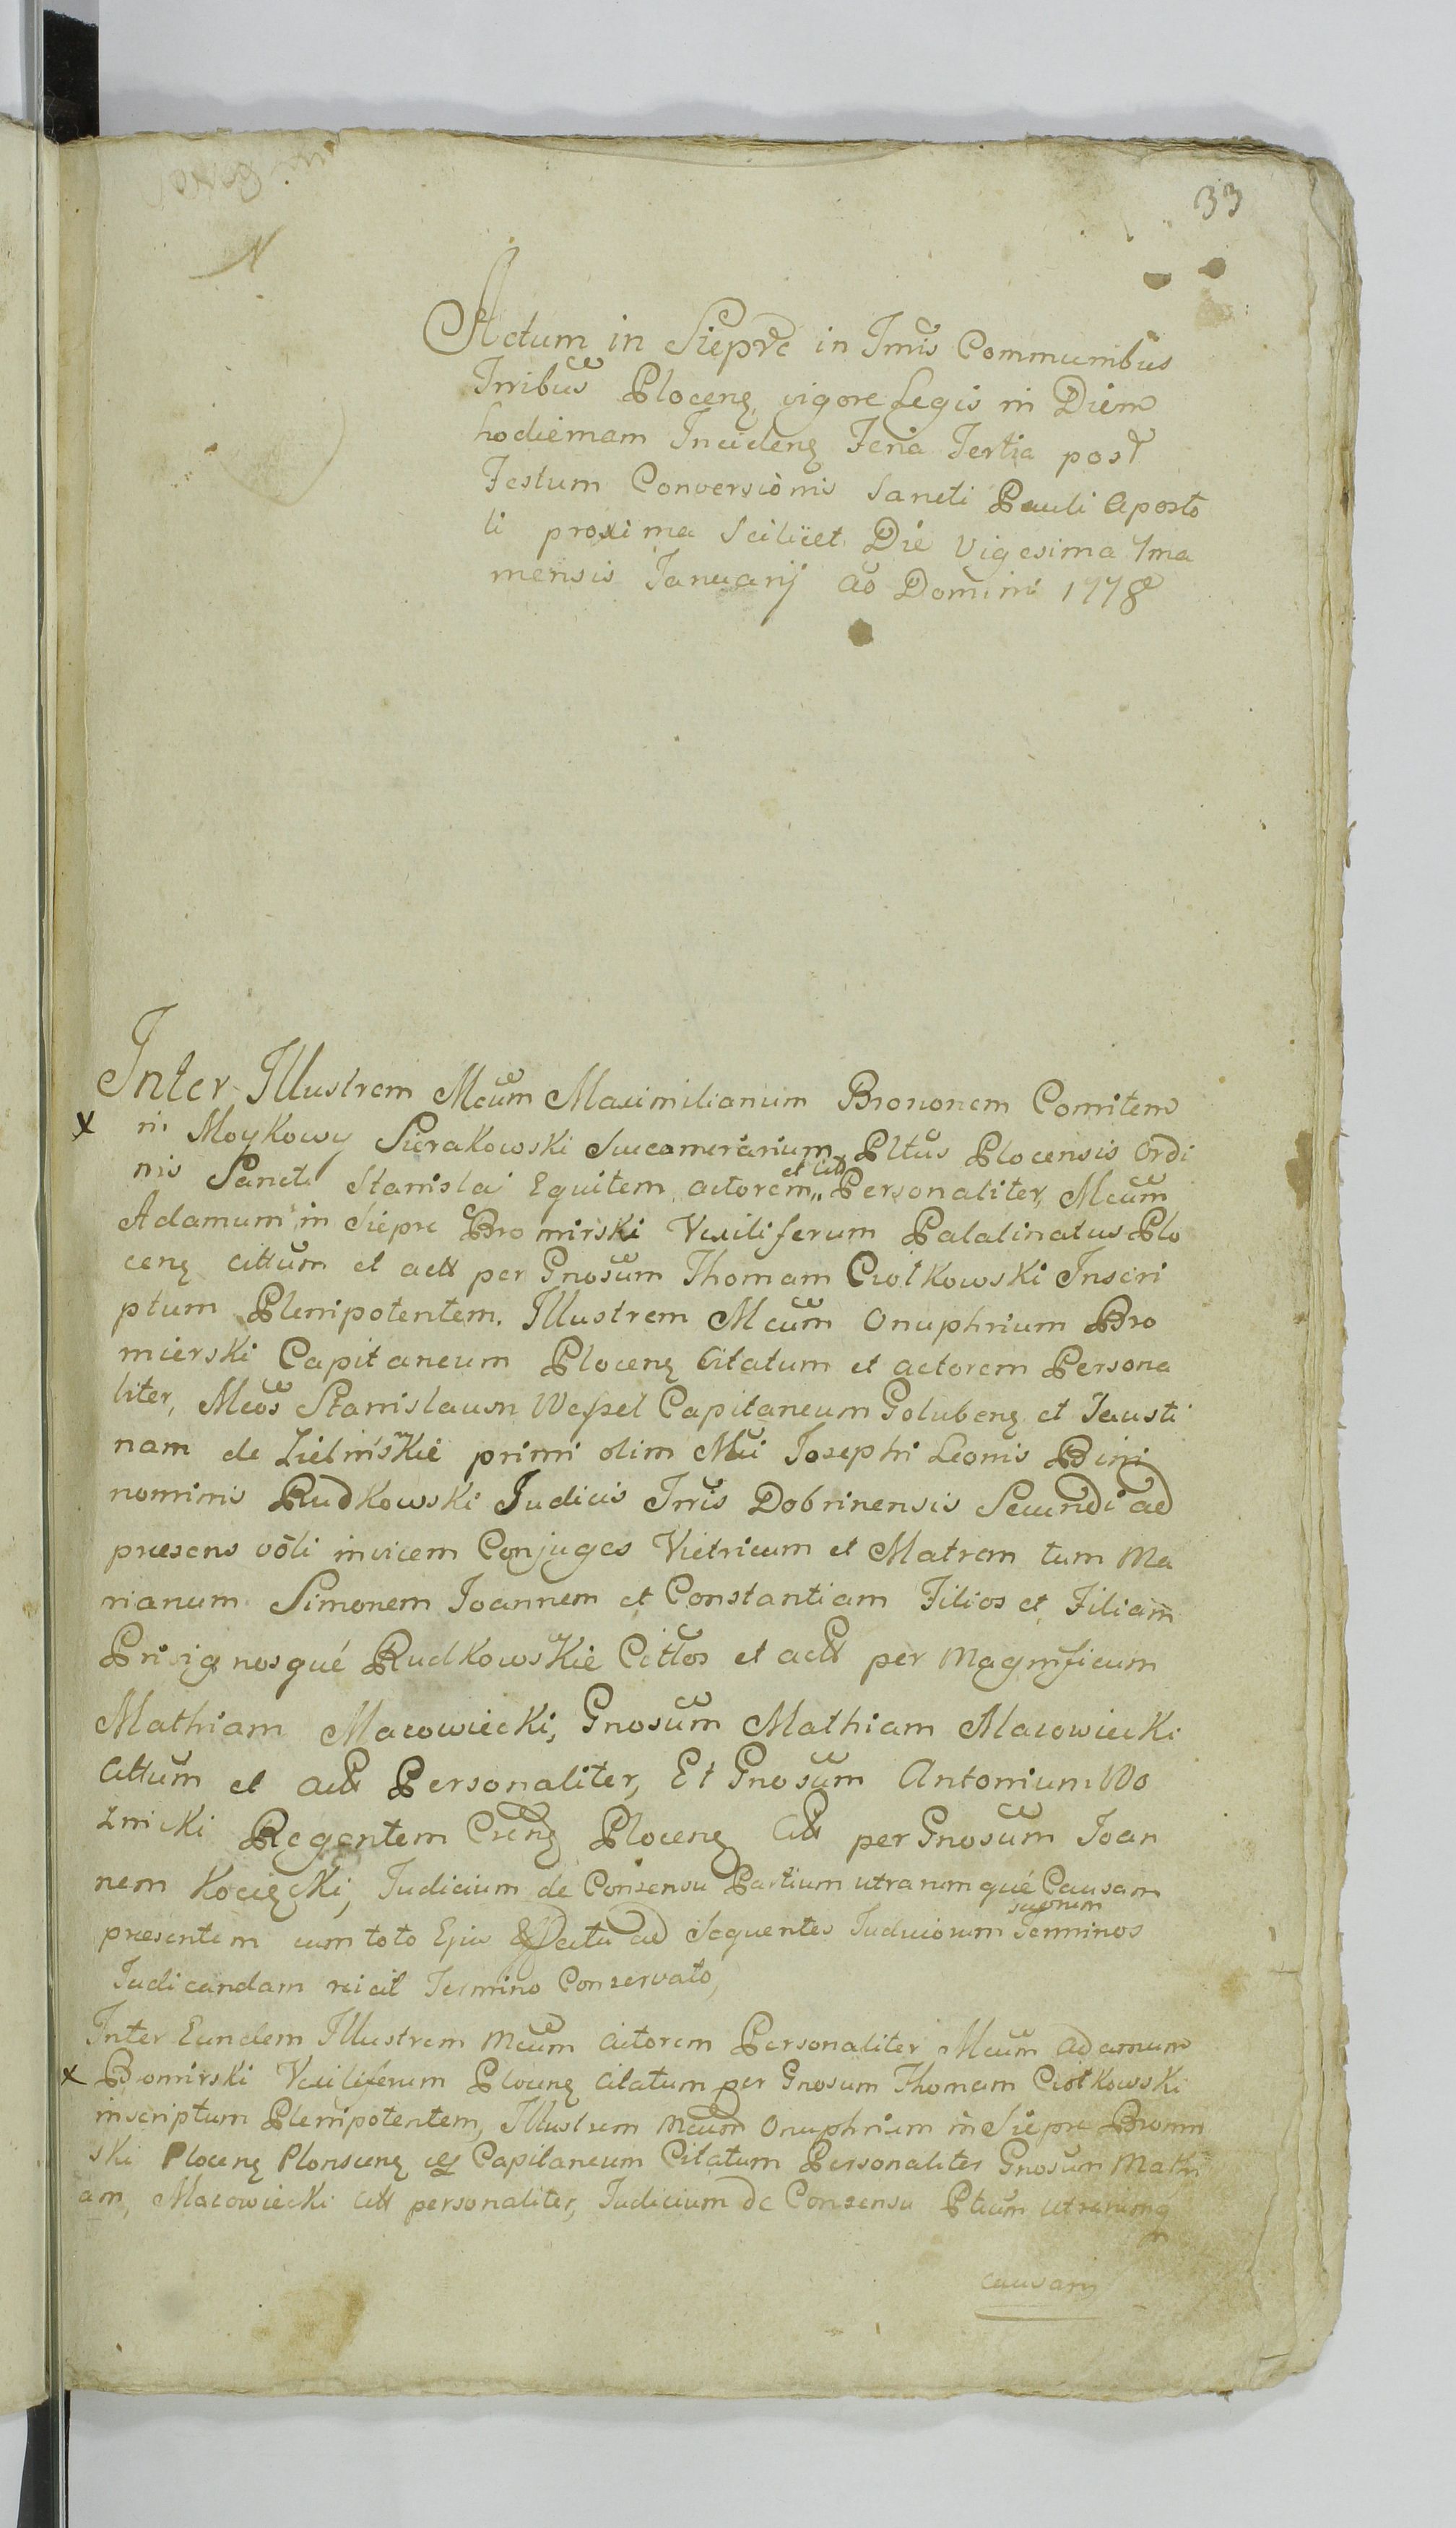 33
Actum in Siepre in Trnis Communibus
Trribus Plocenẹ vigore Legis in Diem
hodiernam Incidenẹ Feria Tertia post
Festum Conversionis Sancti Pauli Aposto
li proxima Scilicet Die Vigesima 7ma
mensis Januarij Ao Domini 1778
Inter Illustrem Mcum Maximilianum Brononem Comitem
in Moykowy Sierakowski Succamerarium Pltus Plocensis Ordi
nis Sancti Stanislai Equitem actorem et citt Personaliter, Mcum
Adamum in Siepre Bromirski Vexiliferum Palatinatus Plo
cenẹ Cittum et actt per Gnosum Thomam Ciotkowski Inscri
ptum Plenipotentem. Illustrem Mcum Onuphrium Bro
mierski Capitaneum Plocenẹ Citatum et actorem Persona
liter, Mcos Stanislaum Wessel Capitaneum Golubenẹ et Fausti
nam de Zielińskie primi olim Mci Josephi Leonis Bini
nominis Rudkowski Judicis Trris Dobrinensis Secundi ad
præsens vōti invicem Conjuges Vitricum et Matrem tum Ma
rianum Simonem Joannem et Constantiam Filios et Filiam
Privignosqué Rudkowskie Cittos et actt per Magnificum
Mathiam Macowiecki, Gnosum Mathiam Macowiecki
Cittum et actt Personaliter, Et Gnosum Antonium Wo
znicki Regentem Crenẹ Plocenẹ Citt per Gnosum Joan
nem Kocięcki, Judicium de Consensu Partium utrarumqué Causam
præsentem cum toto Ejus Effectu ad Sequentes Judiciorum suorum Terminos
Judicandam reicit Termino Conservato,
Inter Eundem Illustrem Mcum Actorem Personaliter Mcum Adamum
Bomirski Vexiliferum Plocenẹ Citatum per Gnosum Thomam Ciotkowski
inscriptum Plenipotentem, Illustrem Mcum Onuphrium in Siepre Bromir
ski Plocenẹ Plonscenẹ Capitaneum Citatum Personaliter Gnosum Mathi
am, Macowiecki Citt personaliter, Judicium de Consensu Ptium utrarumq
causam